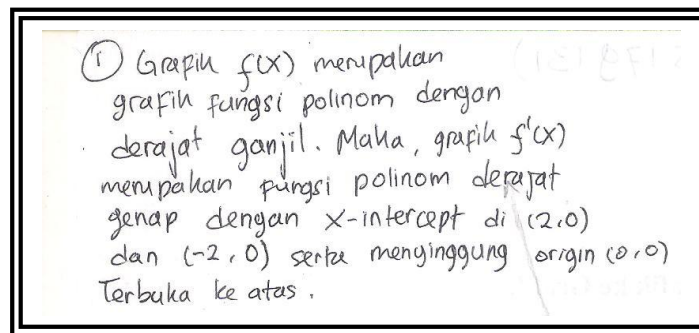 ① Grafik f(x) merupakan
grafik fungsi polinom dengan
derajat ganjil. Maka, grafik f'(x)
merupakan fungsi polinom derajat
genap dengan x-intercept di (2,0)
dan (-2,0) serta menyinggung origin (0,0)
Terbuka ke atas.